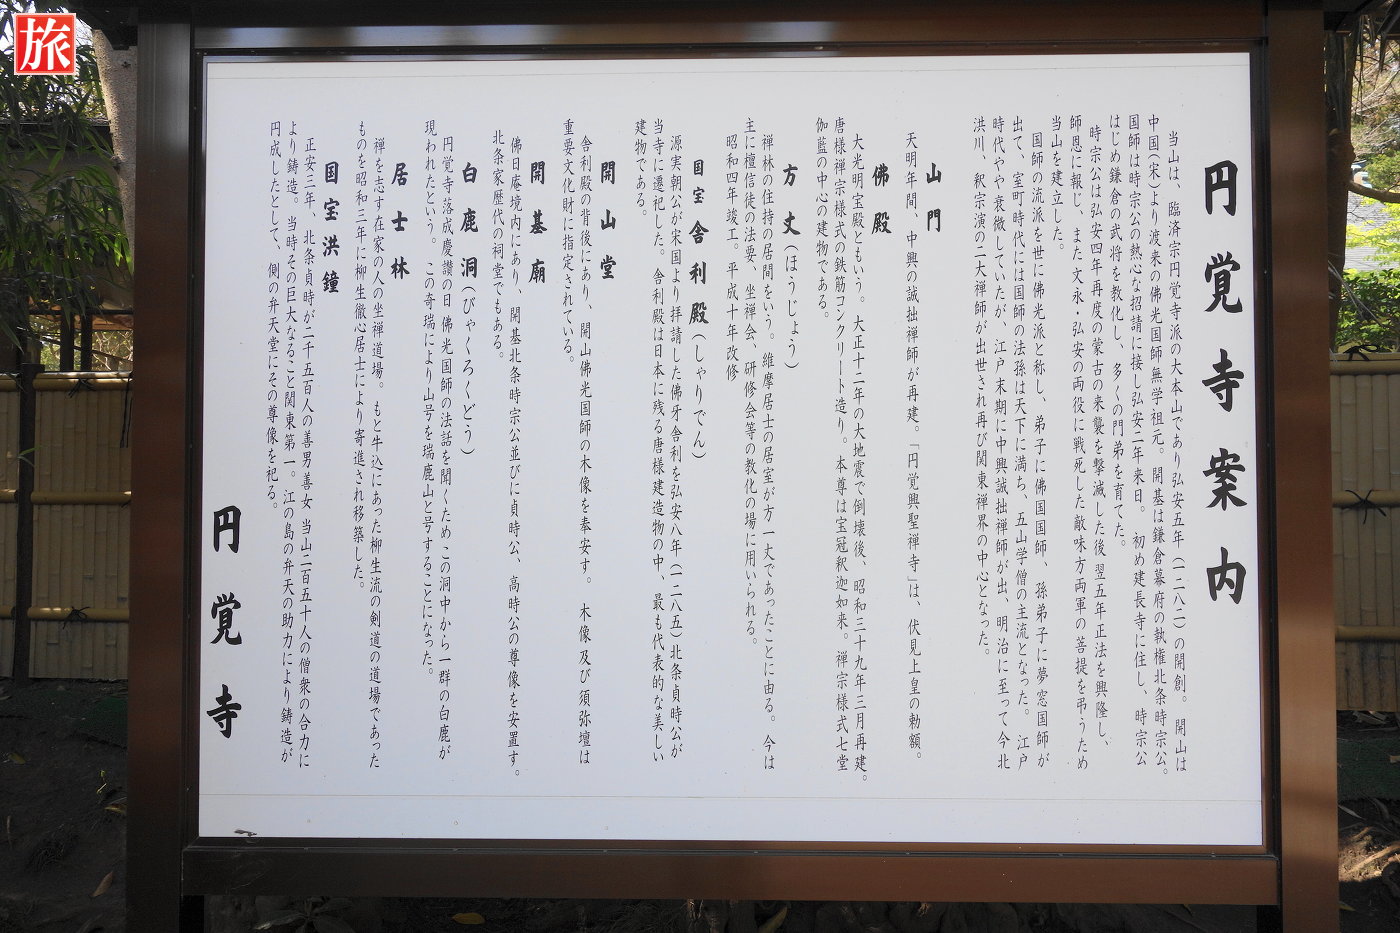 旅
円覚寺案内
当山は、臨済宗円覚寺派の大本山であり弘安五年(一二八二)の開創。開山は
中国(宋)より渡来の佛光国師無学祖元。開基は鎌倉幕府の執権北条時宗公。
国師は時宗公の熱心な招請に接し弘安二年来日。初め建長寺に住し、時宗公
はじめ鎌倉の武将を教化し、多くの門弟を育てた。
時宗公は弘安四年再度の蒙古の来襲を撃滅した後翌五年正法を興隆し、
師恩に報じ、また文永・弘安の両役に戦死した敵味方両軍の菩提を弔うため
当山を建立した。
国師の流派を世に佛光派と称し、弟子に佛国国師、孫弟子に夢窓国師が
出て、室町時代には国師の法孫は天下に満ち、五山学僧の主流となった。江戸
時代やや衰微していたが、江戸末期に中興誠拙禅師が出、明治に至って今北
洪川、釈宗演の二大禅師が出世され再び関東禅界の中心となった。
山門
天明年間、中興の誠拙禅師が再建。「円覚興聖禅寺」は、伏見上皇の勅額。
佛殿
大光明宝殿ともいう。大正十二年の大地震で倒壊後、昭和三十九年三月再建。
唐様禅宗様式の鉄筋コンクリート造り。本尊は宝冠釈迦如来。禅宗様式七堂
伽藍の中心の建物である。
方丈(ほうじょう)
禅林の住持の居間をいう。維摩居士の居室が方一丈であったことに由る。今は
主に檀信徒の法要、坐禅会、研修会等の教化の場に用いられる。
昭和四年竣工。平成十年改修
国宝舎利殿(しゃりでん)
源実朝公が宋国より拝請した佛牙舎利を弘安八年(一二八五)北条貞時公が
当寺に遷祀した。舎利殿は日本に残る唐様建造物の中、最も代表的な美しい
建物である。
開山堂
舎利殿の背後にあり、開山佛光国師の木像を奉安す。木像及び須弥壇は
重要文化財に指定されている。
開基廟
佛日庵境内にあり、開基北条時宗公並びに貞時公、高時公の尊像を安置す。
北条家歴代の祠堂でもある。
白鹿洞(びゃくろくどう)
円覚寺落成慶讃の日佛光国師の法話を聞くためこの洞中から一群の白鹿が
現われたという。この奇瑞により山号を瑞鹿山と号することになった。
居士林
禅を志す在家の人の坐禅道場。もと牛込にあった柳生流の剣道の道場であった
ものを昭和三年に柳生徹心居士により寄進され移築した。
国宝洪鐘
正安三年、北条貞時が二千五百人の善男善女当山二百五十人の僧衆の合力に
より鋳造。当時その巨大なること関東第一。江の島の弁天の助力により鋳造が
円成したとして、側の弁天堂にその尊像を祀る。
円覚寺